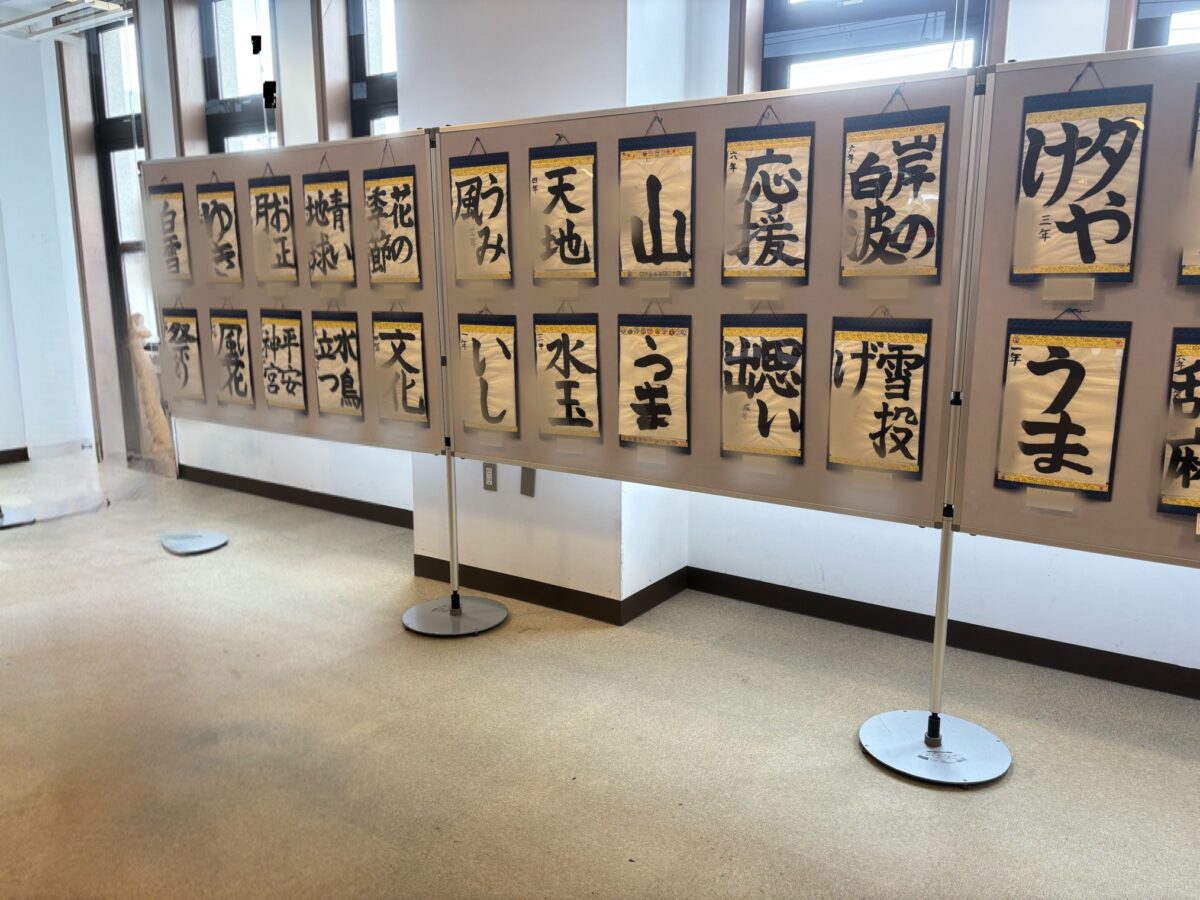 白雪
ゆき
お正
月
青い
地球
花の
季節
うみ
風
三年
四年
天地
山
六年
応援
六年
岸の
白波
夕や
け
三年
祭り
風花
平安
神宮
水鳥
立つ
文化
一年
いし
三年
水玉
うま
思い
出
五年
雪投
げ
一年
うま